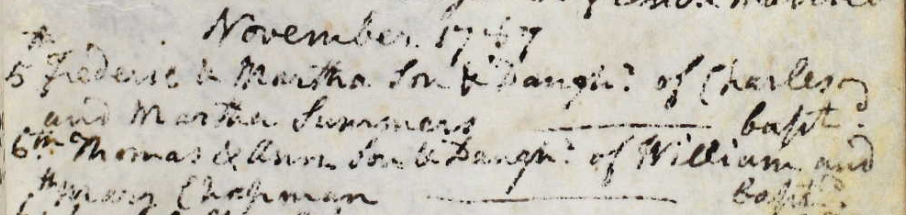 November 1787
5th Frederic & Martha Son & Daughr. of Charles
and Martha Summers — baptd.
6th Thomas & Ann Son & Daughr. of William and
Mary Chapman — baptd.